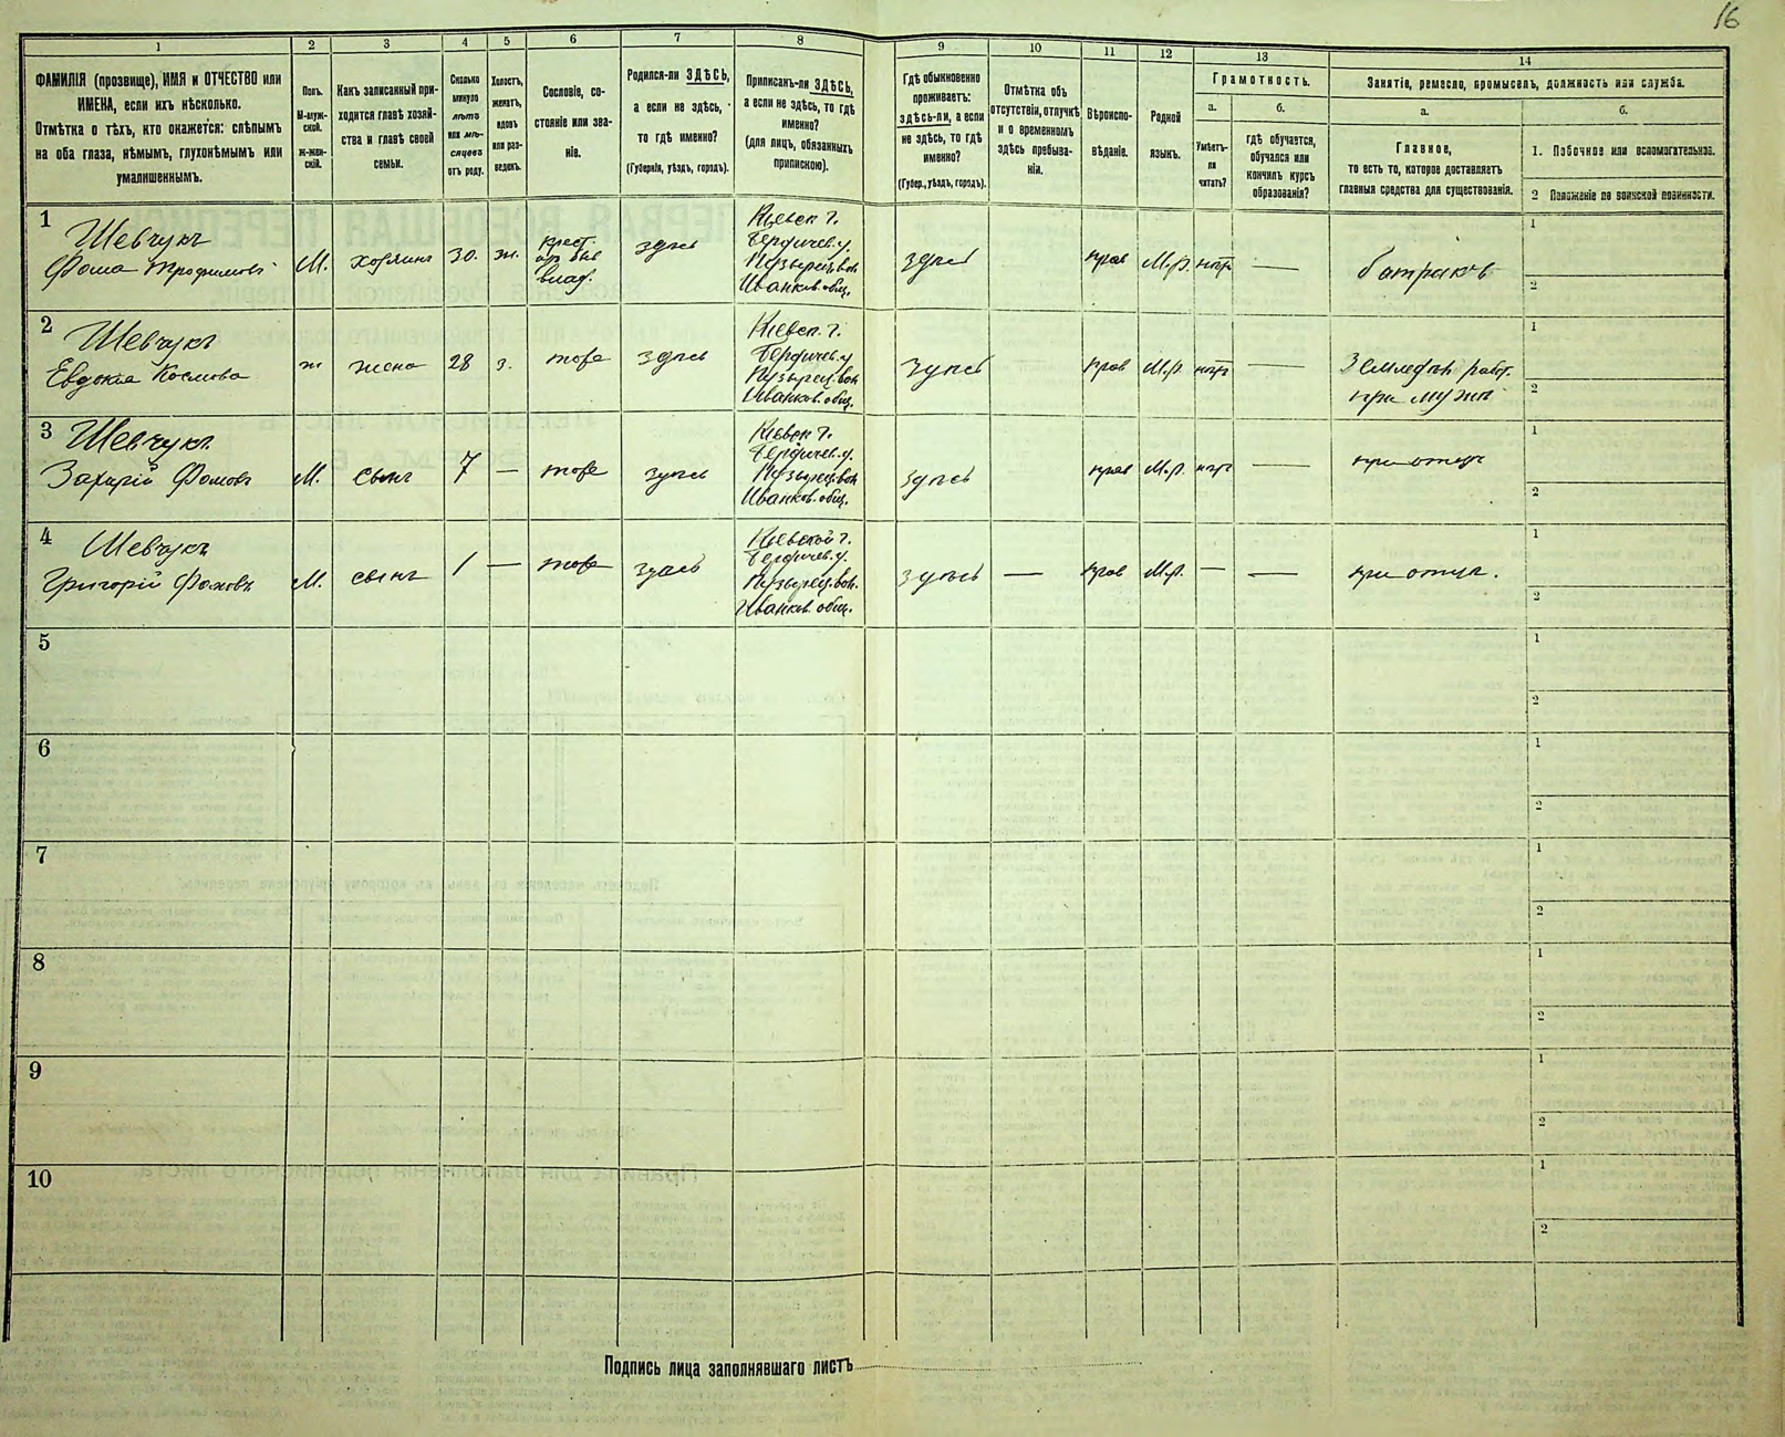 16
1
2
3
4
5
6
7
8
9
10
11
12
13
14
ФАМИЛІЯ (прозвище), ИМЯ и ОТЧЕСТВО или
ИМЕНА, если ихъ нѣсколько.
Отмѣтка о тѣхъ, кто окажется: слѣпымъ
на оба глаза, нѣмымъ, глухонѣмымъ или
умалишеннымъ.
Полъ.
М-муж-
ской.
ж-жен-
скій.
Какъ записанный при-
ходится главѣ хозяй-
ства и главѣ своей
семьи.
Сколько
минуло
лѣтъ
или мѣ-
сяцевъ
отъ роду.
Холостъ,
женатъ,
вдовъ
или раз-
веденъ.
Сословіе, со-
стояніе или зва-
ніе.
Родился-ли ЗДѢСЬ,
а если не здѣсь,
то гдѣ именно?
(Губернія, уѣздъ, городъ).
Приписанъ-ли ЗДѢСЬ,
а если не здѣсь, то гдѣ
именно?
(для лицъ, обязанныхъ
припискою).
Гдѣ обыкновенно
проживаетъ:
здѣсь-ли, а если
не здѣсь, то гдѣ
именно?
(Губер., уѣздъ, городъ).
Отмѣтка объ
отсутствіи, отлучкѣ
и о временномъ
здѣсь пребыва-
ніи.
Вѣроиспо-
вѣданіе.
Родной
языкъ.
Грамотность.
а.
Умѣетъ-
ли
читать?
б.
гдѣ обучается,
обучался или
кончилъ курсъ
образованія?
Занятіе, ремесло, промыселъ, должность или служба.
а.
Главное,
то есть то, которое доставляетъ
главныя средства для существованія.
б.
1. Побочное или вспомогательное.
2 Положеніе по воинской повинности.
1
Шевчукъ
Фома Трофимовъ
М.
хозяинъ
30.
ж.
крест.
влад.
здѣсь
Кіевск г.
Бердичев. у.
Пузырец. вол
Иванков. общ.
здѣсь
прав
М.р.
нѣтъ
—
батракъ
1
2
2
Шевчукъ
Евдокія Космова
ж
жена
28
з.
тоже
здѣсь
Кіевск. г.
Бердичев. у
Пузырец. вол
Иванков. общ.
здѣсь
прав
М.р.
нѣтъ
—
Земледѣл. работ.
при мужѣ
1
2
3
Шевчукъ
Захарій Фомовъ
М.
сынъ
7
—
тоже
здѣсь
Кіевск г.
Бердичев. у.
Пузырец. вол
Иванков. общ.
здѣсь
прав
М.р.
нѣтъ
—
при отцѣ
1
2
4
Шевчукъ
Григорій Фомовъ
М.
сынъ
1
—
тоже
здѣсь
Кіевской г.
Бердичев. у.
Пузырец. вол.
Иванков. общ.
здѣсь
—
прав
М.р.
—
—
при отцѣ.
1
2
5
1
2
6
1
2
7
1
2
8
1
2
9
1
2
10
1
2
Подпись лица заполнявшаго листъ